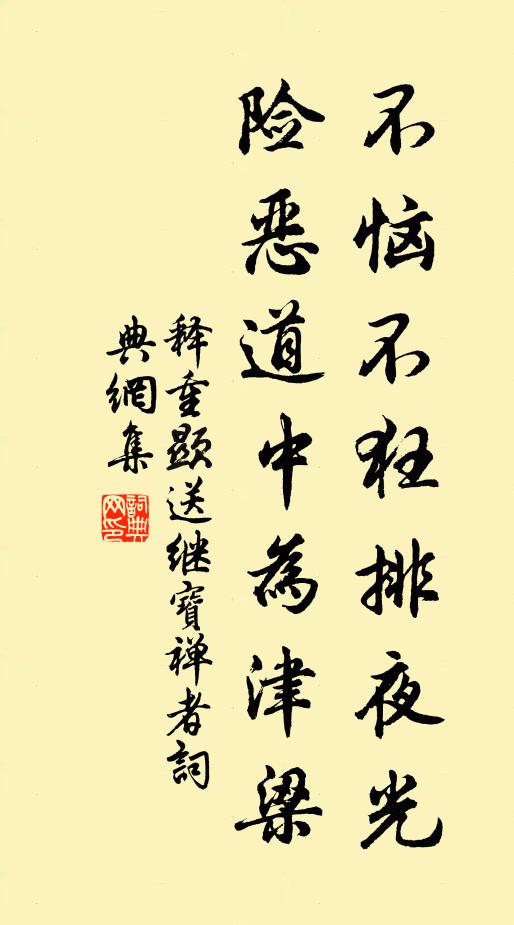 不恼不狂排夜光
险恶道中为津梁
释重显送继寶禅者詞
典網集
詞典网印